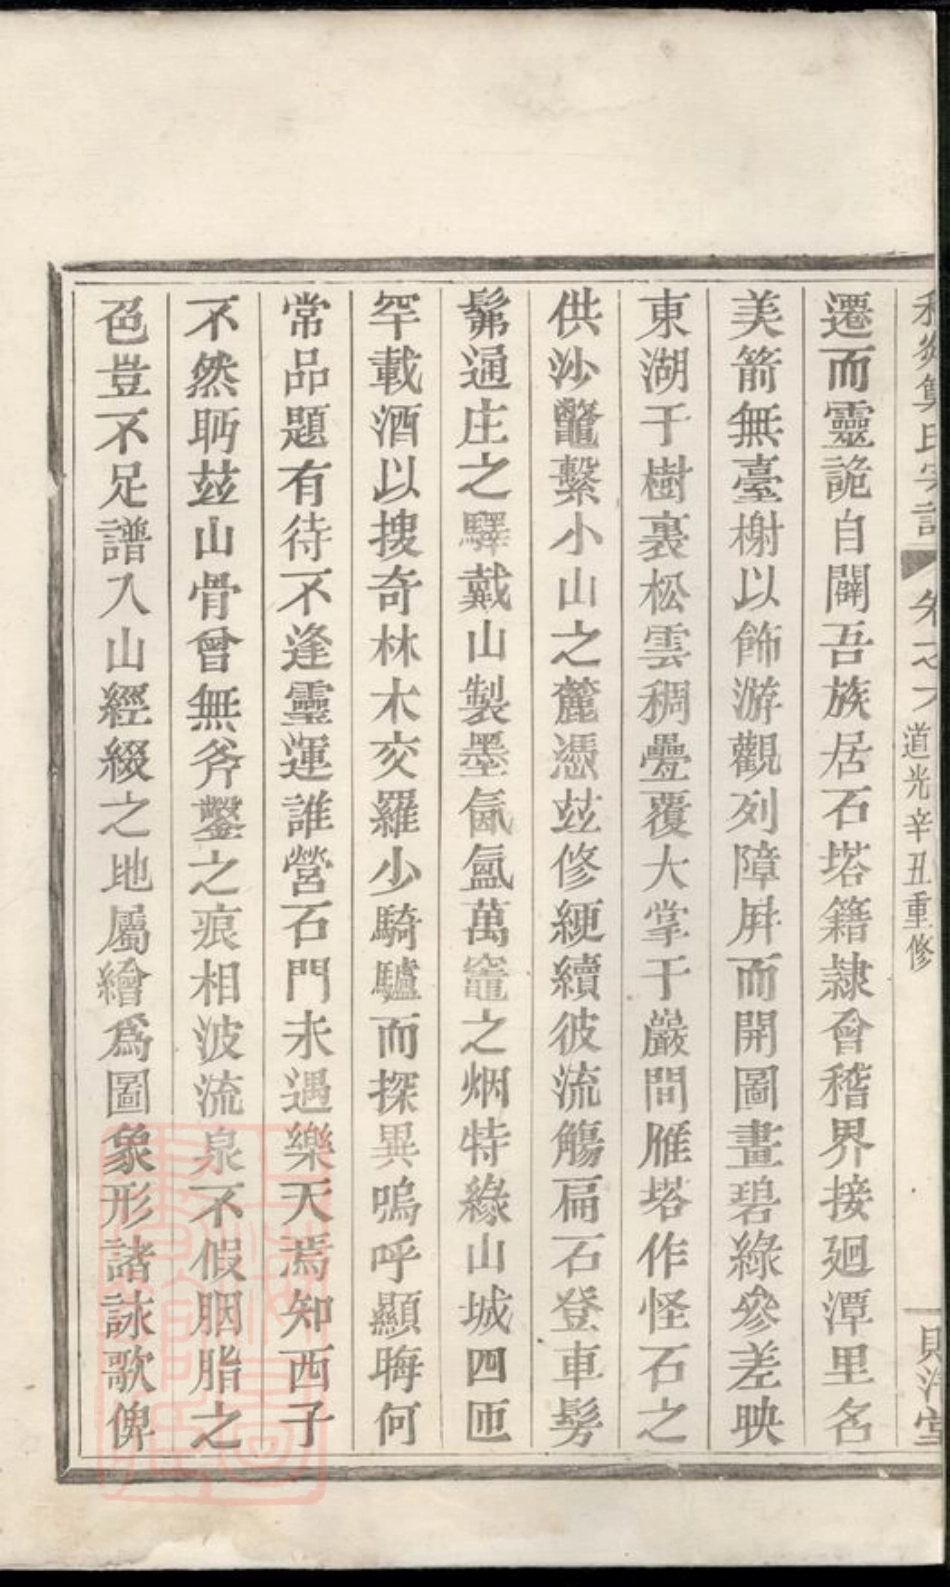 道光辛丑重修
遷而靈詭自闢吾族居石塔籍隷會稽界接廻潭里名
美箭無臺榭以飾游觀列障屛而開圖畫碧綠參差映
東湖于樹裏松雲稠疊覆大掌于巖間雁塔作怪石之
供沙鼈繫小山之麓憑玆修綆續彼流觴扁石登車髣
髴通庄之驛戴山製墨氤氳萬竈之烟特緣山城四匝
罕載酒以搜奇林木交羅少騎驢而探異嗚呼顯晦何
常品題有待不逢靈運誰營石門未遇樂天焉知西子
不然眄玆山骨曾無斧鑿之痕相波流泉不假胭脂之
色豈不足譜入山經綴之地屬繪爲圖象形諸詠歌俾